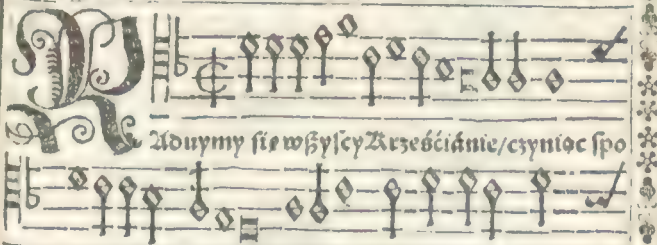 RAduymy się wßyſcy Krześćiánie/czyniąc ſpo